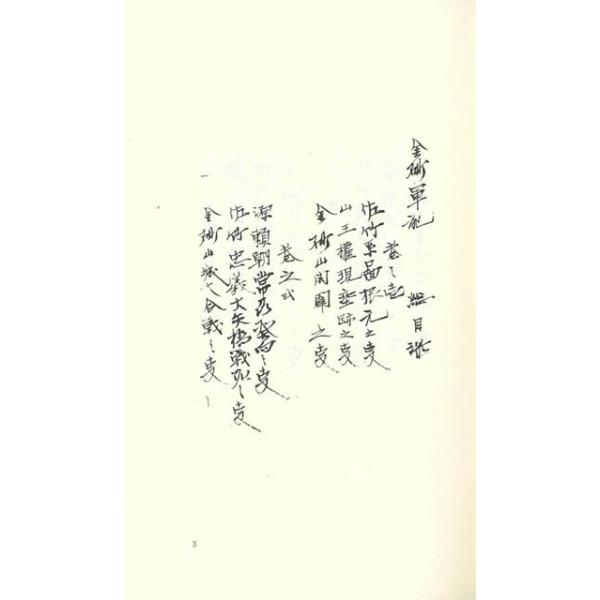 金砂軍記 総目録
巻之壱
佐竹系圖根元之叓
山王権現垂跡之叓
金砂山開闢之叓
巻之弐
源頼朝常州発向之叓
佐竹忠義大矢橋戦死之叓
金砂山城合戦之叓
3